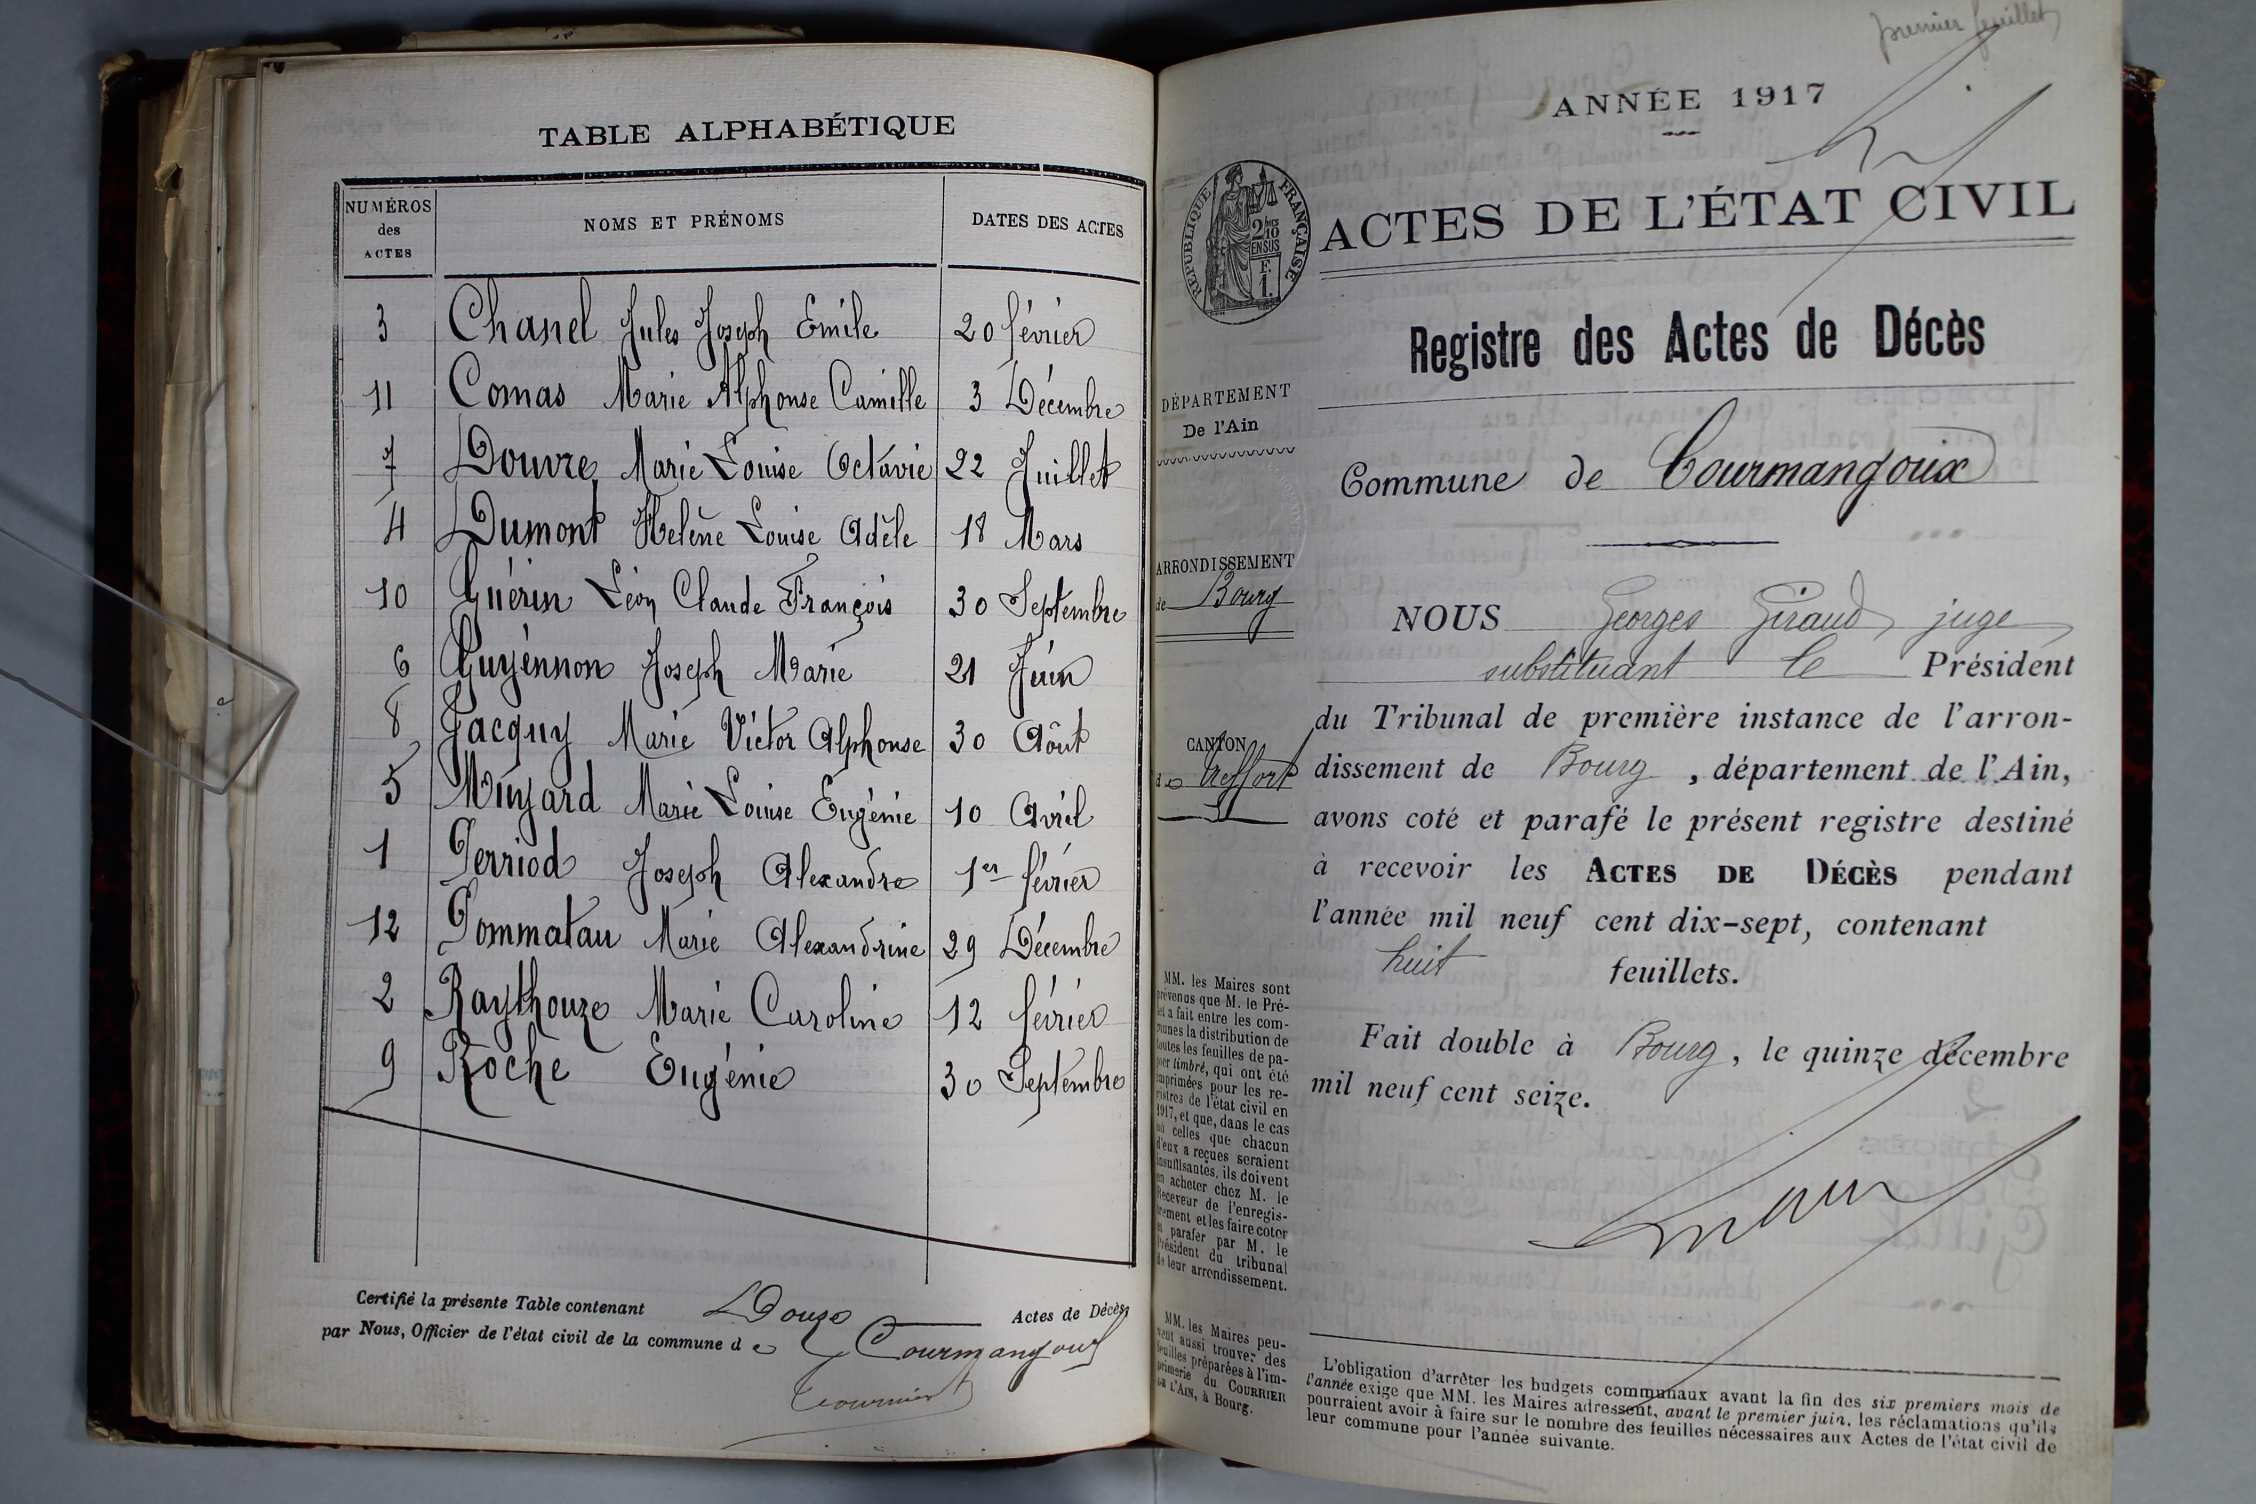 TABLE ALPHABÉTIQUE
NUMÉROS
des
ACTES
NOMS ET PRÉNOMS
DATES DES ACTES
3 Chanel Jules Joseph Emile 20 février
11 Comas Marie Alphonse Camille 3 Décembre
7 Douvre Marie Louise Octavie 22 Juillet
4 Dumont Helène Louise Adèle 18 Mars
10 Guérin Léon Claude François 30 Septembre
6 Guyénnon Joseph Marie 21 Juin
8 Jacquy Marie Victor Alphonse 30 Aôut
5 Muyard Marie Louise Eugénie 10 Avril
1 Perriod Joseph Alexandre 1er février
12 Pommatau Marie Alexandrine 29 Décembre
2 Raythouze Marie Caroline 12 février
9 Roche Eugénie 30 Septembre
Certifié la présente Table contenant Douze Actes de Décès,
par Nous, Officier de l'état civil de la commune de Courmangoux
premier feuillet
ANNÉE 1917
RÉPUBLIQUE FRANÇAISE
2 10
EN SUS
F.
1.
ACTES DE L'ÉTAT CIVIL
Registre des Actes de Décès
DÉPARTEMENT
De l'Ain
Commune de Courmangoux
ARRONDISSEMENT
de Bourg
CANTON
de Treffort
NOUS Georges Giraud, juge
substituant le Président
du Tribunal de première instance de l'arron-
dissement de Bourg, département de l'Ain,
avons coté et parafé le présent registre destiné
à recevoir les ACTES DE DÉCÈS pendant
l'année mil neuf cent dix-sept, contenant
huit feuillets.
Fait double à Bourg, le quinze décembre
mil neuf cent seize.
MM. les Maires sont
prévenus que M. le Pré-
fet a fait entre les com-
munes la distribution de
toutes les feuilles de pa-
pier timbré, qui ont été
imprimées pour les re-
gistres de l'état civil en
1917, et que, dans le cas
où celles que chacun
d'eux a reçues seraient
insuffisantes, ils doivent
en acheter chez M. le
Receveur de l'enregis-
trement et les faire coter
et parafer par M. le
Président du tribunal
de leur arrondissement.
MM. les Maires peu-
vent aussi trouver des
feuilles préparées à l'im-
primerie du COURRIER
DE L'AIN, à Bourg.
L'obligation d'arrêter les budgets communaux avant la fin des six premiers mois de
l'année exige que MM. les Maires adressent, avant le premier juin, les réclamations qu'ils
pourraient avoir à faire sur le nombre des feuilles nécessaires aux Actes de l'état civil de
leur commune pour l'année suivante.